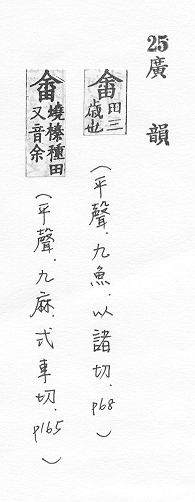 25廣韻
畬 田三歲也
（平聲．九魚．以諸切．p68）
畬 燒榛種田又音余
（平聲．九麻．式車切．p165）